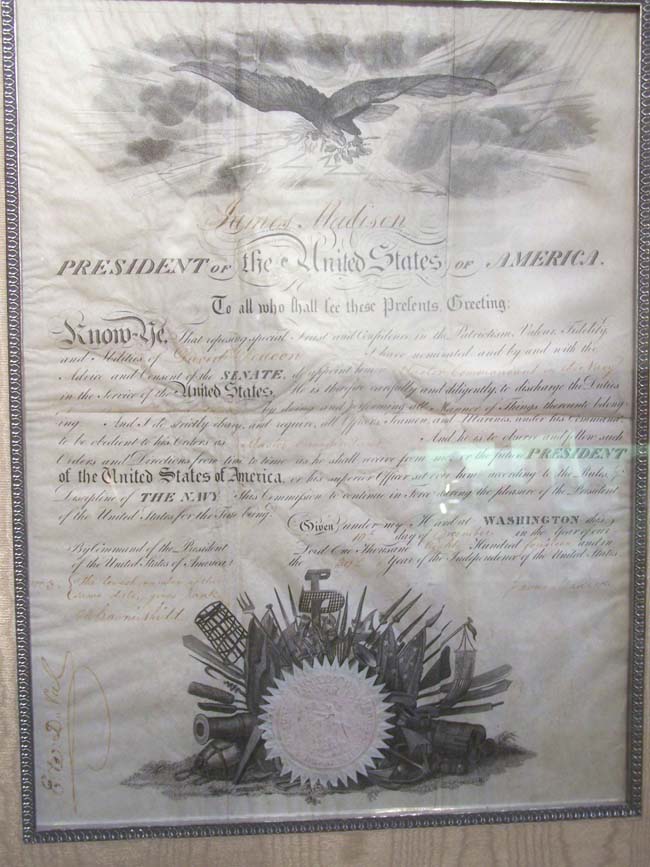 James Madison
PRESIDENT OF the United States OF AMERICA.
To all who shall see these Presents, Greeting:
Know Ye, That reposing special Trust and Confidence in the Patriotism, Valour, Fidelity
and Abilities of David Deacon I have nominated, and by and with the
Advice and Consent of the SENATE, do appoint him a Master Commandant in the Navy
in the Service of the United States. He is therefore carefully and diligently, to discharge the Duties
by doing and performing all Manner of Things thereunto belong
ing And I do strictly charge, and require, all Officers, Seamen, and Marines, under his Command
to be obedient to his Orders as Master And he is to observe and follow such
Orders and Directions from time to time as he shall receive from me, or the future PRESIDENT
of the United States of America, or his superior Officer set over him, according to the Rules &
Discipline of THE NAVY This Commission to continue in force during the pleasure of the President
of the United States for the Time being.
Given under my Hand at WASHINGTON this
10th day of December in the Year of our
By Command of the President Lord One Thousand Eight Hundred fourteen and in
of the United States of America: the 39th Year of the Independence of the United States.